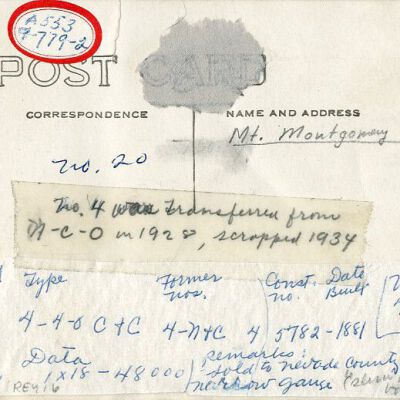 A553
9-779-2
POST CARD
CORRESPONDENCE
NAME AND ADDRESS
Mt. Montgomery
No. 20
No. 4 was transferred from
N-C-O in 1928, scrapped 1934
Type Former nos. Const. no. Date Built
4-4-0 C+C 4-N+C 4 5782-1881
Data
1 x 18 - 48000
remarks:
sold to Nevada County
narrow gauge
REY 16